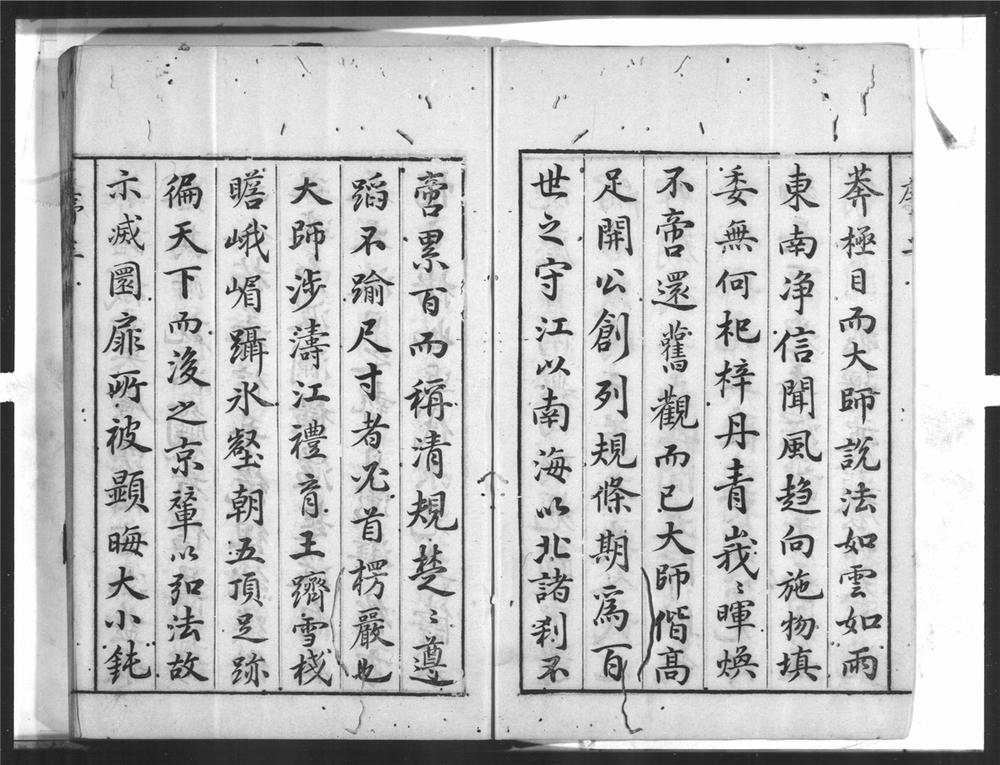 莽極目而大師說法如雲如雨
東南净信聞風趋向施物填
委無何杞梓丹青峩〻暉煥
不啻還舊觀而已大師偕高
足開公創列規條期爲百
世之守江以南海以北諸刹不
啻累百而稱清規楚〻遵
蹈不踰尺寸者必首楞嚴也
大師涉濤江禮育王躋雪棧
瞻峨嵋躡氷壑朝五頂足跡
徧天下而後之京輦以弘法故
示滅圜扉所被顯晦大小鈍